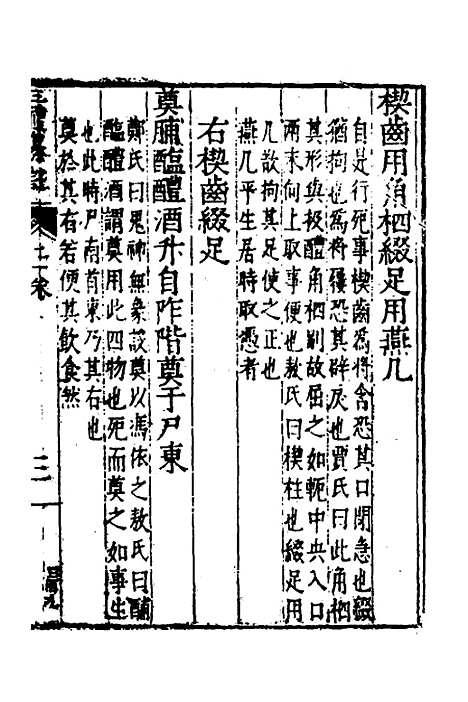 楔齒用角柶綴足用燕几
自是行死事楔齒為將含恐其口閉急也綴
猶拘也為將屨恐其辟戾也賈氏曰此角柶
其形與扱醴角柶制故屈之如軛中央入口
兩末向上取事便也敖氏曰楔柱也綴足用
几故拘其足使之正也
燕几平生居時取憑者
右楔齒綴足
奠脯醢醴酒升自阼階奠于尸東
鄭氏曰鬼神無象設奠以馮依之敖氏曰脯
醢醴酒謂奠用此四物也死而奠之如事生
也此時尸南首東乃其右也
奠於其右若便其飲食然